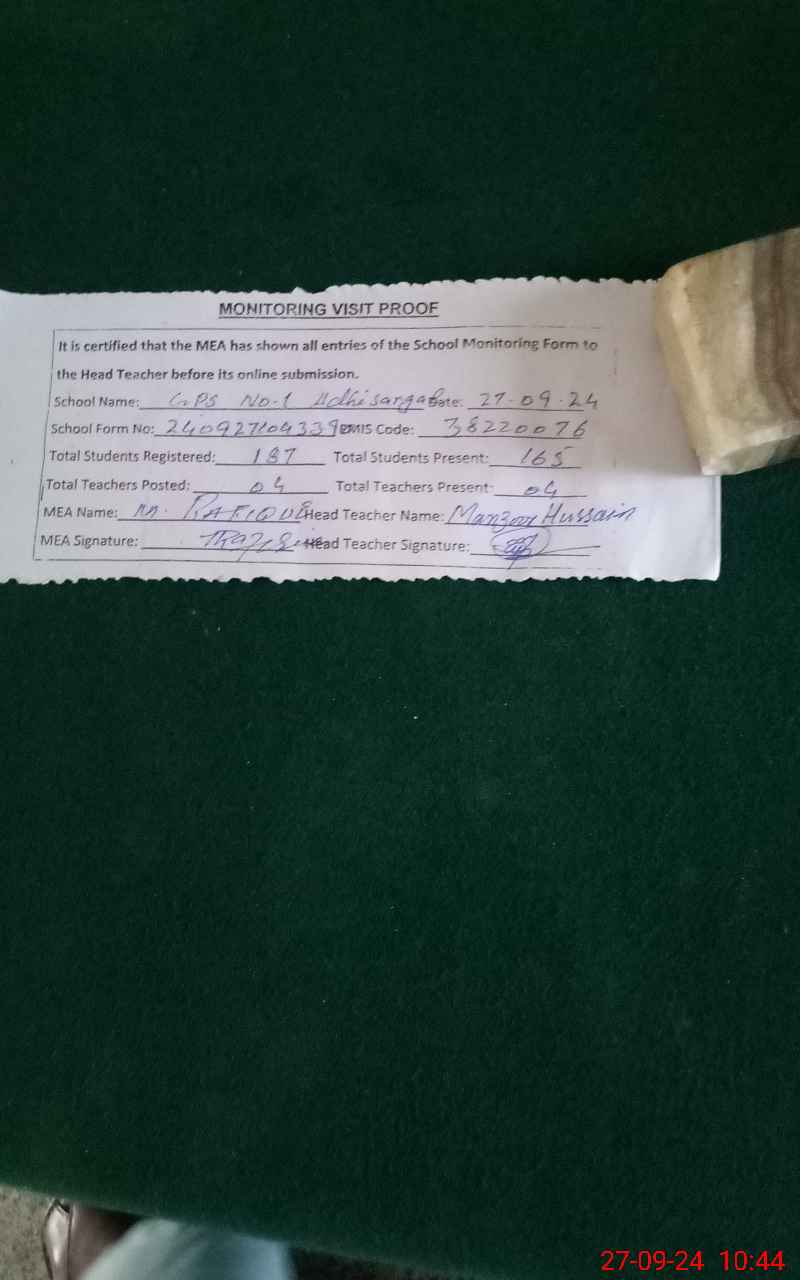 MONITORING VISIT PROOF
It is certified that the MEA has shown all entries of the School Monitoring Form to
the Head Teacher before its online submission.
School Name: GPS No-1 Adhi Sargal Date: 27-09-24
School Form No: 240927104339 EMIS Code: 38220076
Total Students Registered: 187 Total Students Present: 165
Total Teachers Posted: 04 Total Teachers Present: 04
MEA Name: M. RAFIQUE Head Teacher Name: Manzoor Hussain
MEA Signature: Head Teacher Signature:
27-09-24 10:44